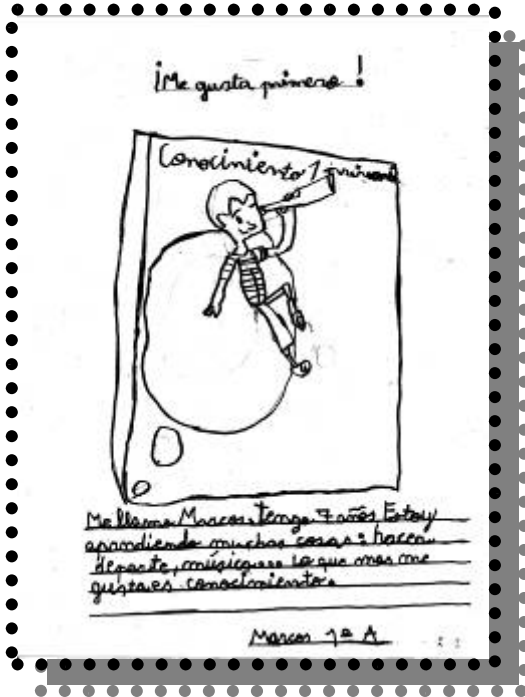 ¡Me gusta primero!
Conocimiento 1 primero
Me llamo Marcos. tengo 7 años Estoy
aprendiendo muchas cosas: hacer
deporte, música... lo que mas me
gusta es conocimiento.
Marcos 1º A